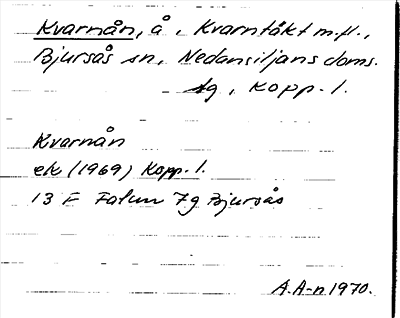 Kvarnån, å, Kvarntäkt m.fl.,
Bjursås sn, Nedansiljans doms.
tg, Kopp. l.
Kvarnån
ek (1969) Kopp. l.
13 F Falun 7g Bjursås
A.A-n 1970.